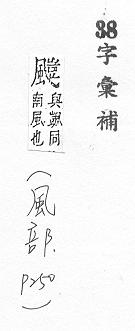 38
字彙補
與同
南風也
（風部. P250）